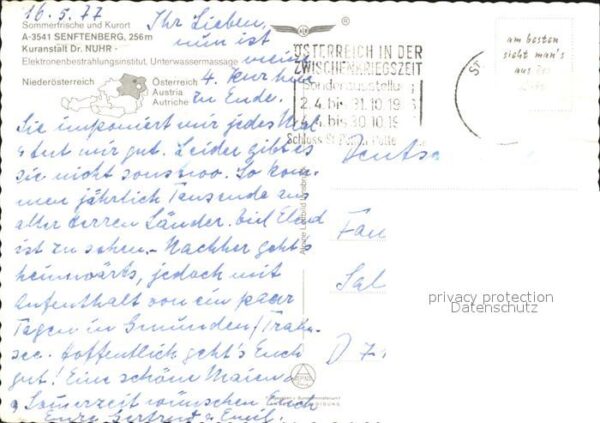 16.5.77
Sommerfrische und Kurort
A-3541 SENFTENBERG, 256m
Kuranstalt Dr. NUHR -
Elektronenbestrahlungsinstitut, Unterwassermassage
Niederösterreich
Österreich
Austria
Autriche
Ihr Lieben,
nun ist
meine
4. Kur hier
zu Ende.
Sie imponiert mir jedes Mal
& tut mir gut. Leider gibt es
sie nicht sonstwo. So kom-
men jährlich Tausende aus
aller Herren Länder. Viel Elend
ist zu sehen.- Nachher geht's
heimwärts, jedoch mit
Aufenthalt von ein paar
Tagen in Gmunden/Traun-
see. Hoffentlich geht's Euch
gut! Eine schöne Maien-
& Sommerzeit wünschen Euch
Eure Gertrud & Emil.
ÖSTERREICH IN DER
ZWISCHENKRIEGSZEIT
Sonderausstellung
2. 4. bis 31. 10. 19
bis 30. 10. 19
Schloss
am besten
sieht man's
aus der
Deutsc
Fam
Sal
D 7
privacy protection
Datenschutz